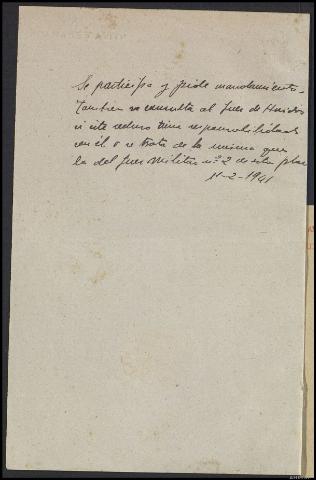 Se participa y pide mandamiento.
Tambien se consulta al Juez de
si este recluso tiene responsabilidad
con él o se trata de la misma que
la del Juez Militar nº 2 de esta plaza
11-2-1941